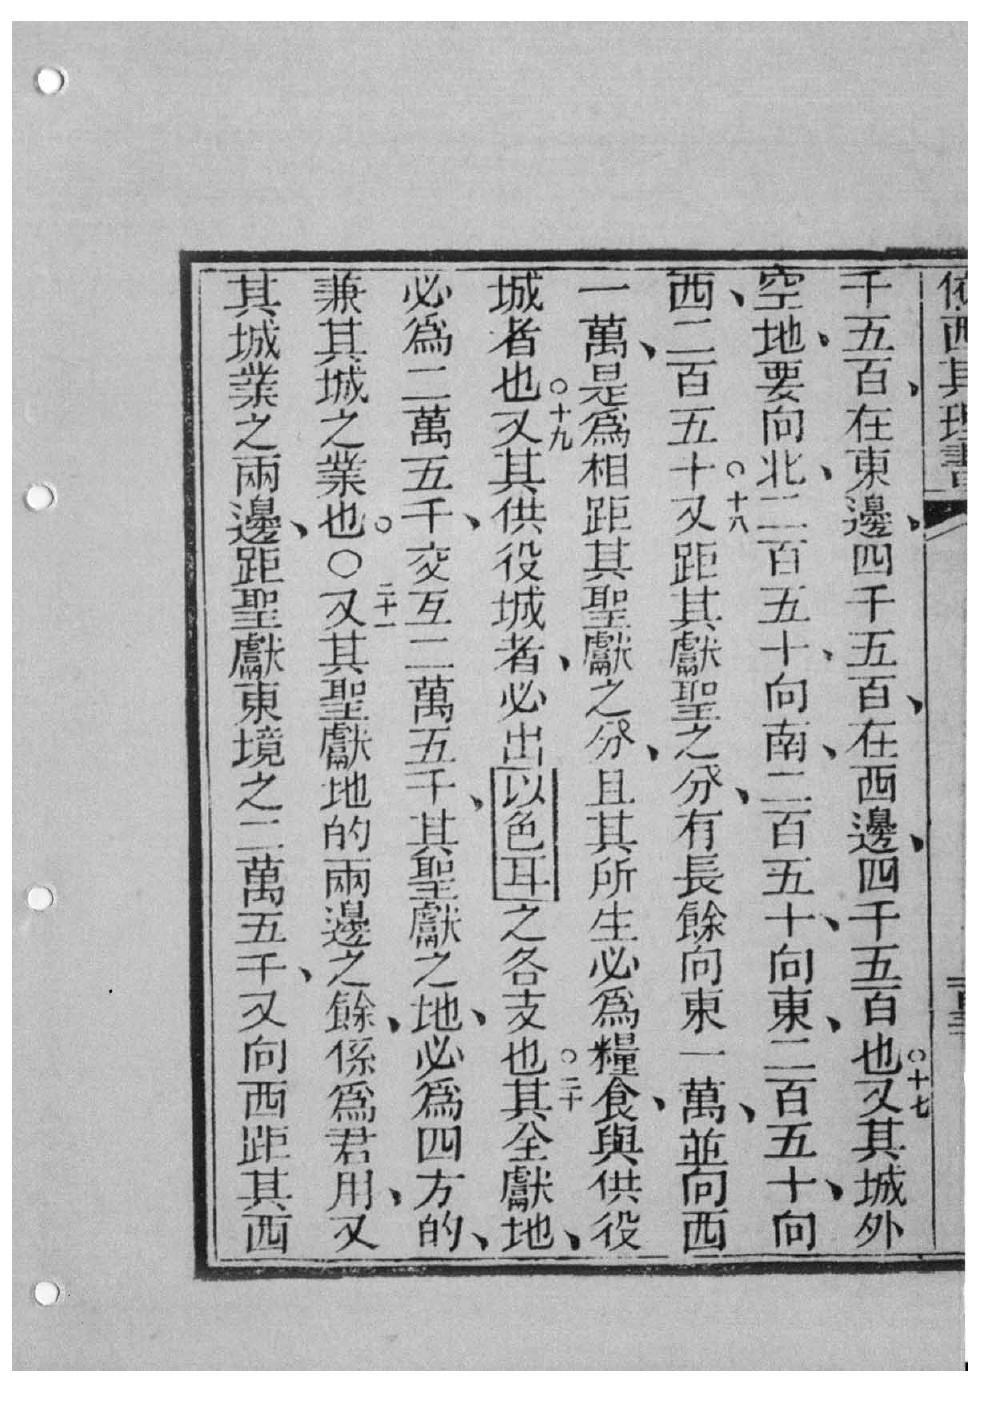 依西其理書
千五百、在東邊、四千五百、在西邊、四千五百也○十七又其城外
空地、要向北、二百五十、向南、二百五十、向東、二百五十、向
西、二百五十○十八又距其獻聖之分、有長餘向東一萬、並向西
一萬、是爲相距其聖獻之分、且其所生必爲糧食、與供役
城者也○十九又其供役城者、必出以色耳之各支也○二十其全獻地、
必爲二萬五千、交互二萬五千、其聖獻之地、必爲四方的、
兼其城之業也○○二十一又其聖獻地的兩邊之餘、係爲君用、又
其城業之兩邊、距聖獻東境之二萬五千、又向西距其西